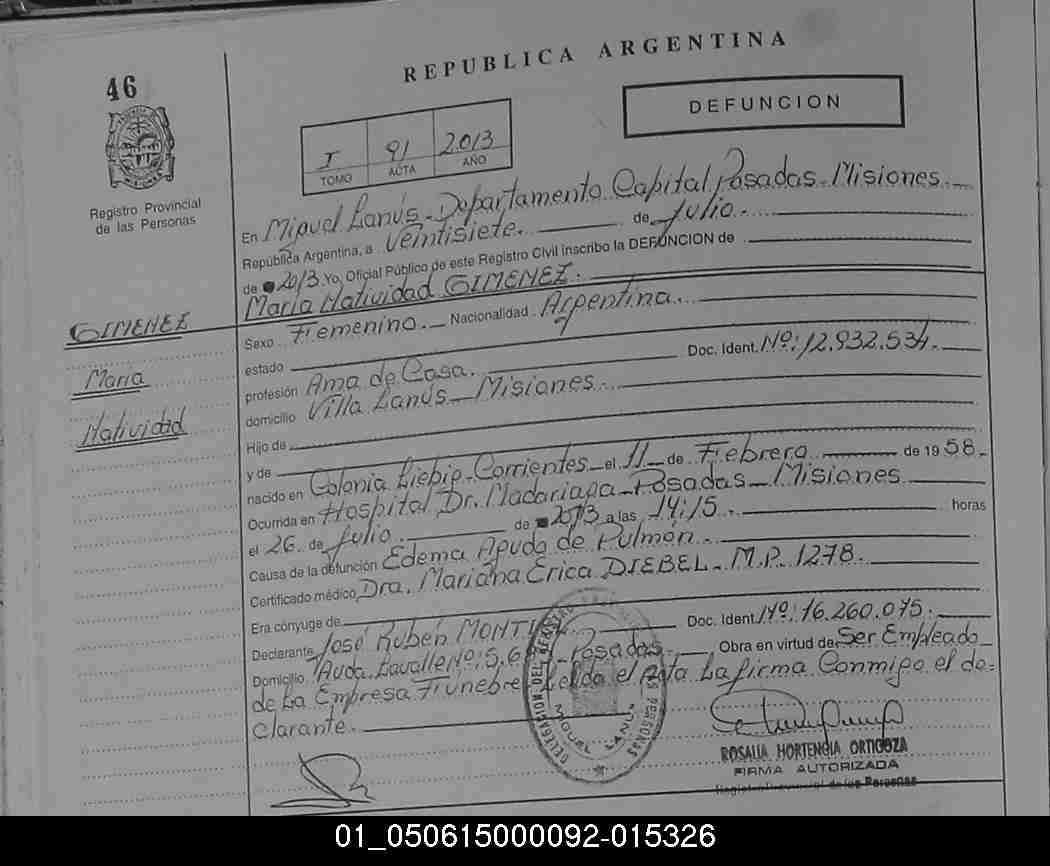 REPUBLICA ARGENTINA
46
DEFUNCION
I 91 2013
TOMO ACTA AÑO
Registro Provincial
de las Personas
En Miguel Lanús - Departamento Capital Posadas - Misiones
República Argentina, a Veintisiete. de Julio.
de 2013 Yo, Oficial Público de este Registro Civil inscribo la DEFUNCION de
María Natividad GIMENEZ.
GIMENEZ
María
Natividad
Sexo Femenino. Nacionalidad Argentina.
estado
profesión Ama de Casa. Doc. Ident. Nº: 12.932.534.
domicilio Villa Lanús - Misiones
Hijo de
y de
nacido en Colonia Liebig - Corrientes - el 11 de Febrero de 1958.
Ocurrida en Hospital Dr. Madariaga - Posadas - Misiones
el 26 de Julio. de 2013 a las 14:15. horas
Causa de la defunción Edema Agudo de Pulmón.
Certificado médico Dra. Mariana Erica DIEBEL - M.P. 1278.
Era cónyuge de
Declarante José Rubén Doc. Ident. Nº: 16.260.075.
Domicilio Avda. Lavalle Nº: Posadas. Obra en virtud de Ser Empleado
de La Empresa Fúnebre Leida el Acta La firma Conmigo el de=
clarante.
DELEGACION DEL REGISTRO PERSONAS
MIGUEL LANUS
ROSALIA HORTENCIA ORTIGOZA
FIRMA AUTORIZADA
Registro Provincial de las Personas
01_050615000092-015326